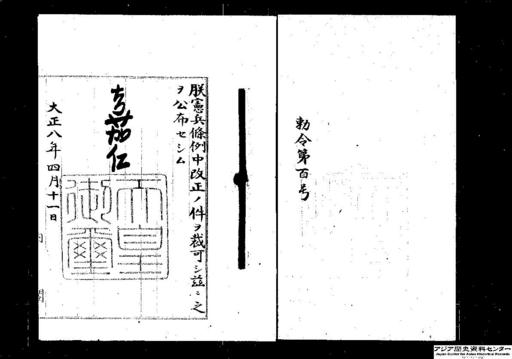 勅令第百号
朕憲兵條例中改正ノ件ヲ裁可シ茲ニ之
ヲ公布セシム
嘉仁
天皇御璽
大正八年四月十一日
アジア歴史資料センター
Japan Center for Asian Historical Records